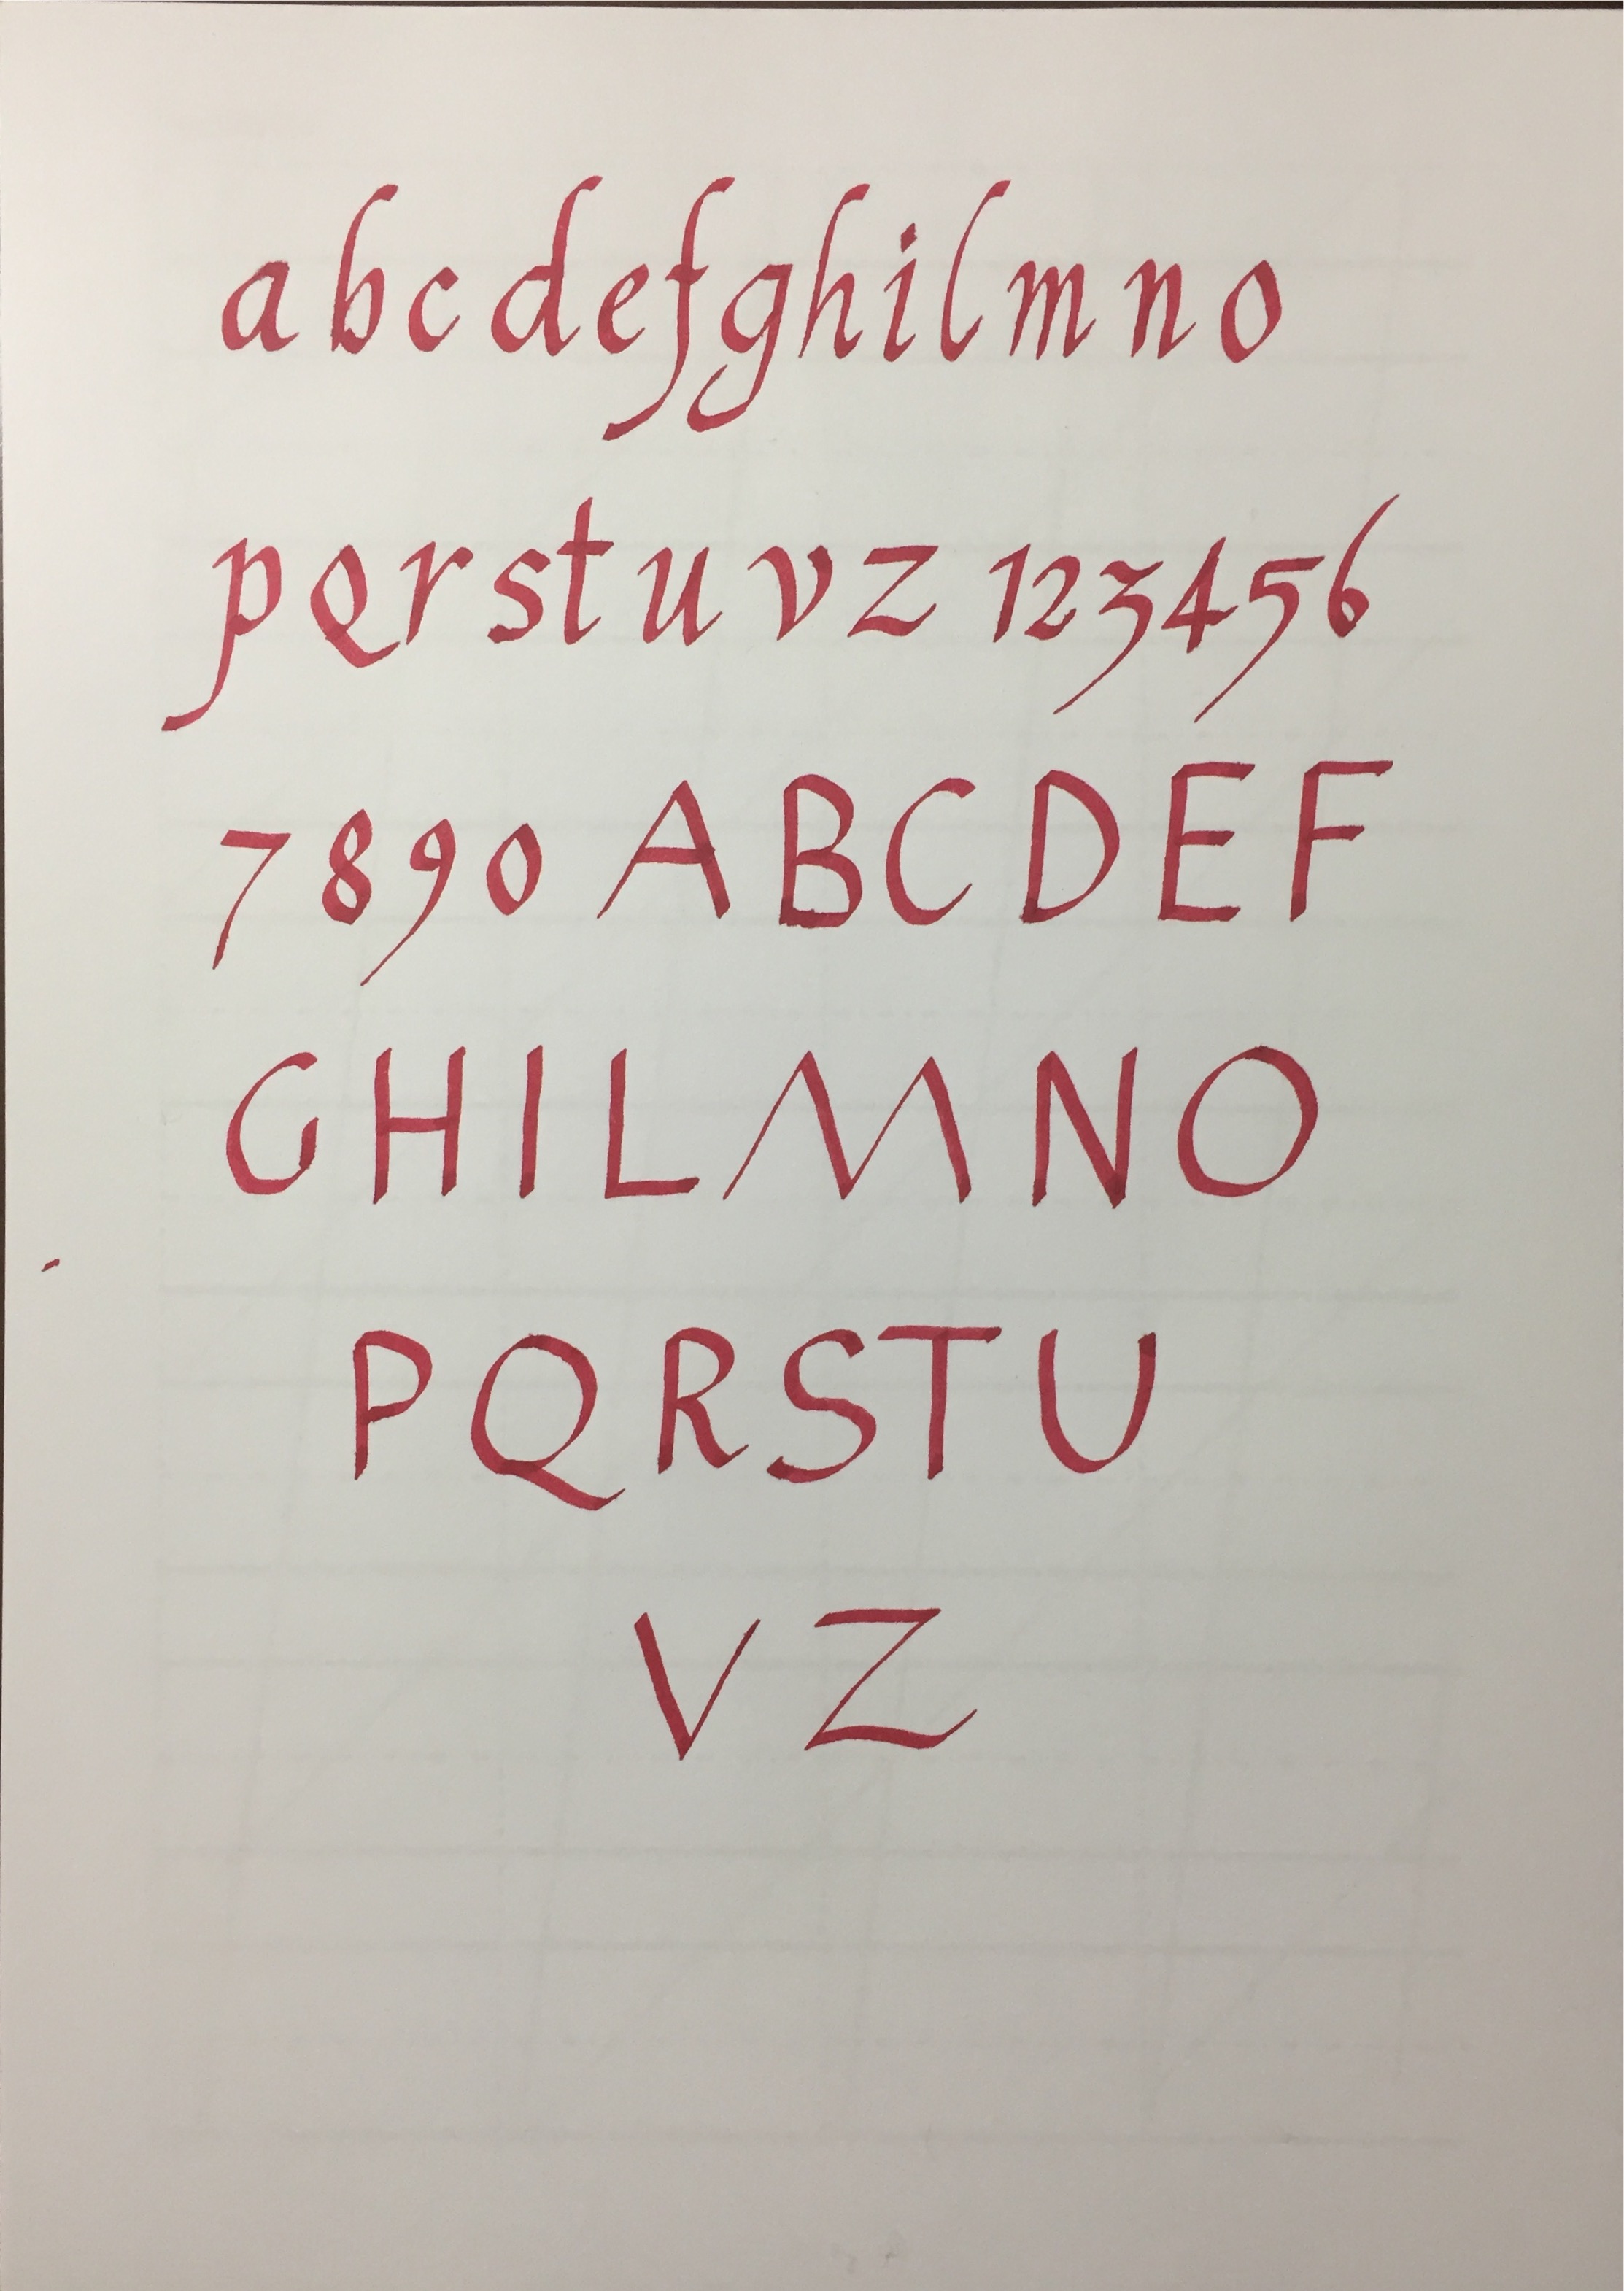 a b c d e f g h i l m n o
p q r s t u v z 1 2 3 4 5 6
7 8 9 0 A B C D E F
G H I L M N O
P Q R S T U
V Z